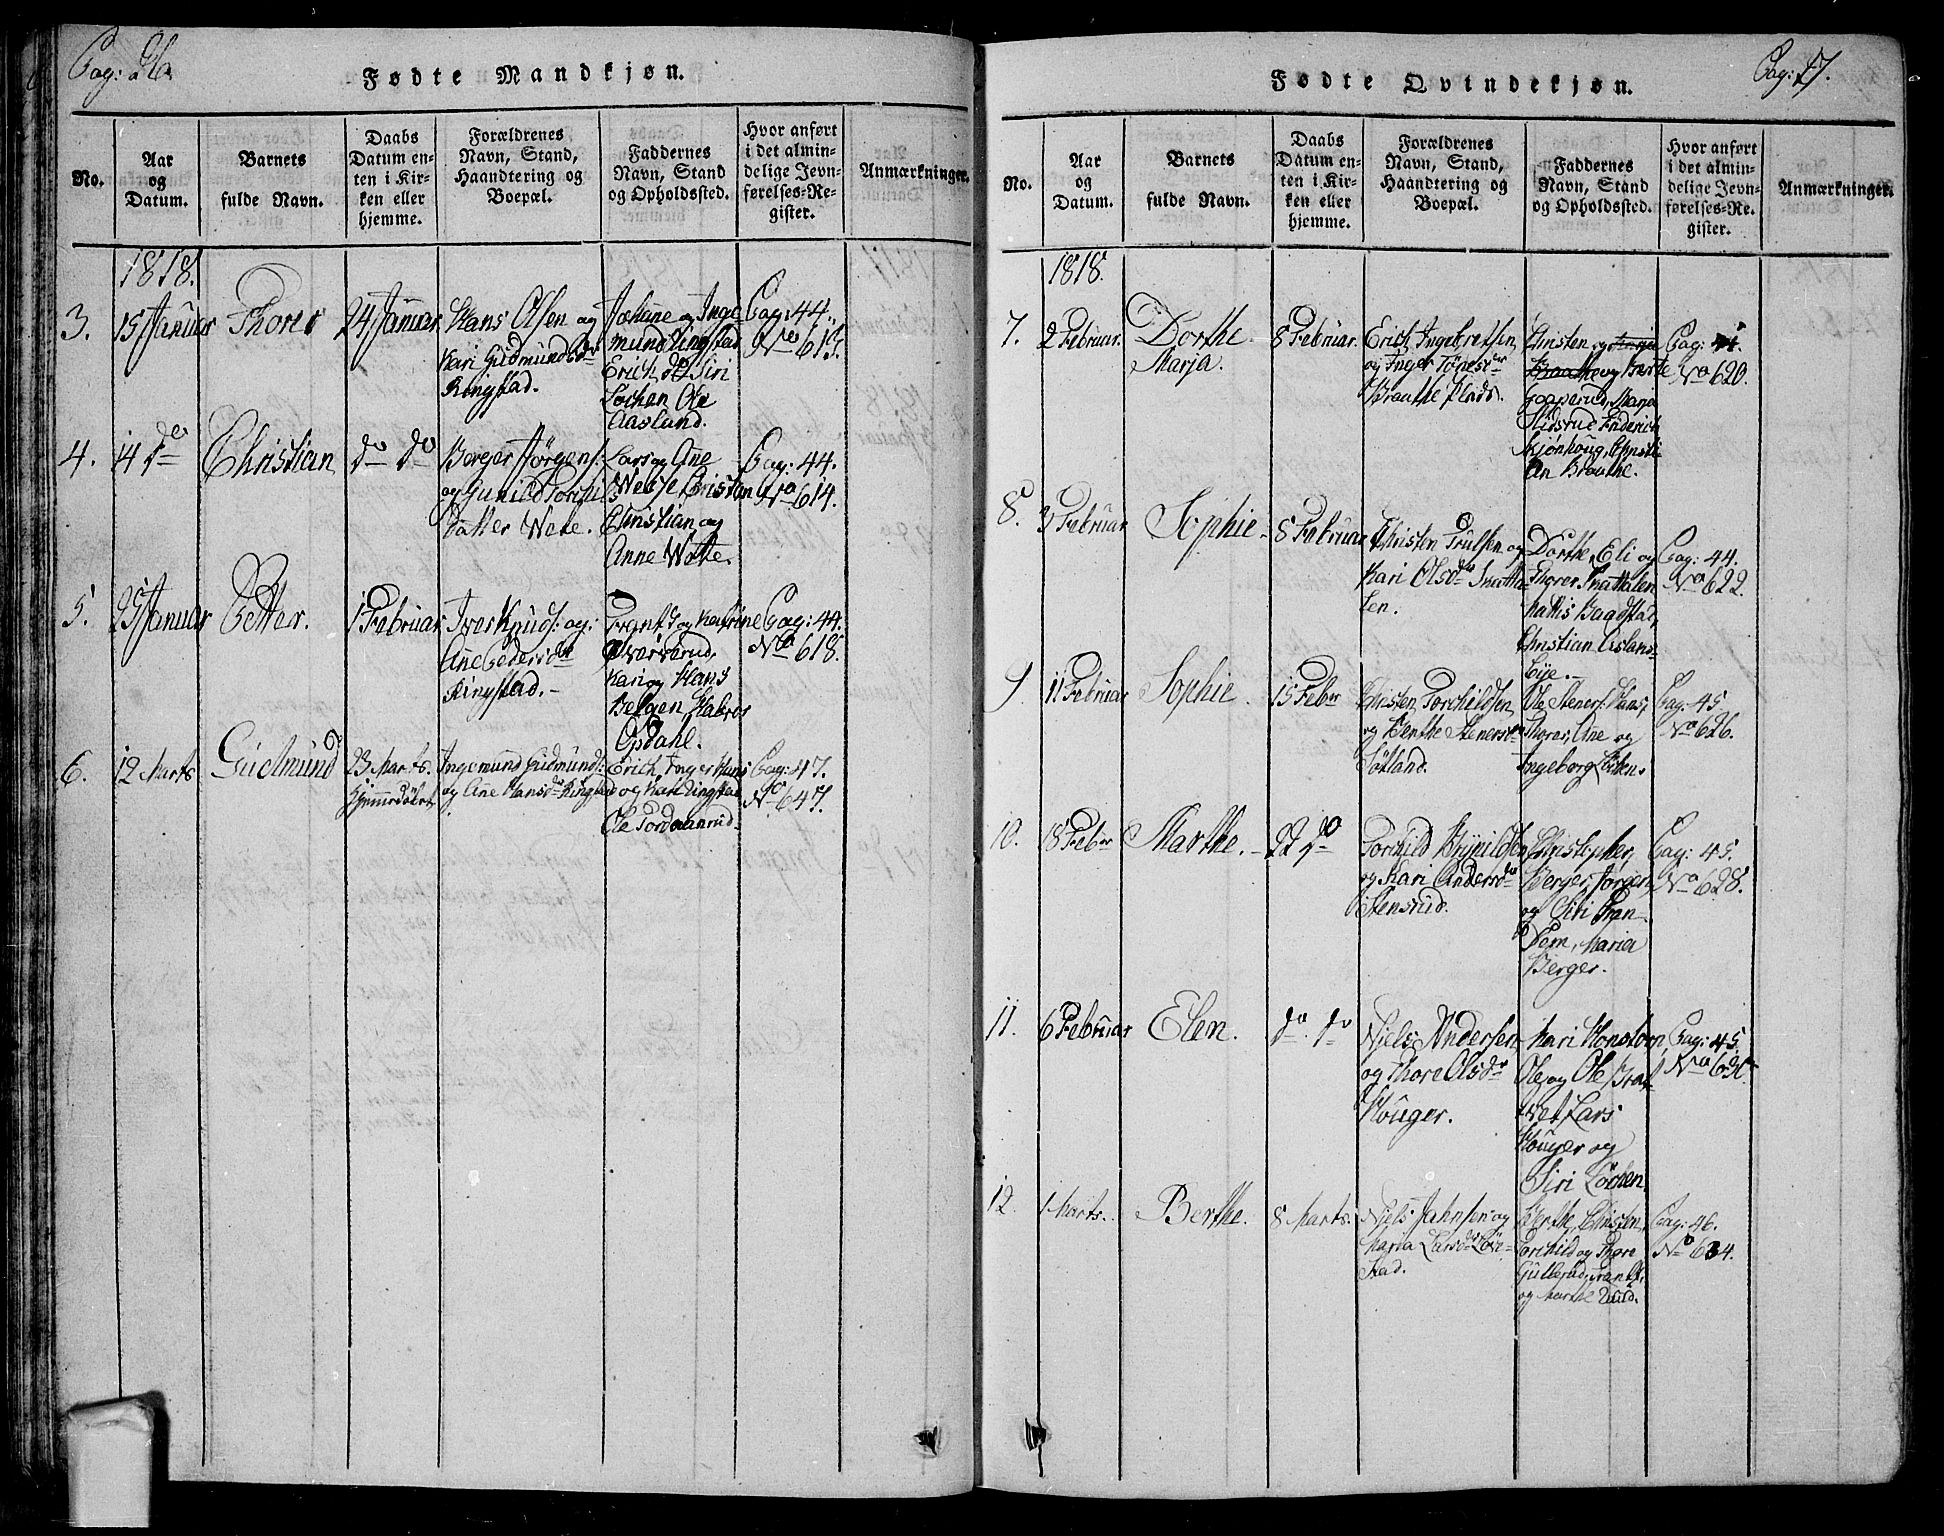 Pag: 26.
Fødte Mandkjøn.
No.
Aar
og
Datum.
Barnets
fulde Navn.
Daabs
Datum en-
ten i Kir-
ken eller
hjemme.
Forældrenes
Navn, Stand,
Haandtering og
Boepæl.
Faddernes
Navn, Stand
og Opholdssted.
Hvor anført
i det almin-
delige Jevn-
førelses-Re-
gister.
Anmærkninger.
1818.
3.
15 Januar
Thorer
24 Januar
Hans Olsen og
Kari Gudmundsdr
Ringstad.
og Inge
mund Ringstad
Erich do Siri
Lochen Ole
Aasland.
Pag: 44.
No 613.
4.
14 do
Christian
do do
Berger Jörgens:
og Gunild Torchi
datter Wete.
Lars og Ane
Christian
Christian og
Anne Wette.
Pag: 44.
No 614.
5.
25 Januar
Petter.
1 Februar
Iver Knuds: og
Ane Pedersdr
Ringstad.
og Katrine
Kari og Hans
Opdahl.
Pag: 44.
No 618.
6.
12 Marts
Gudmund
23 Marts.
Hjemmedöbt
Ingemund Gudmunds:
og Ane Hansdr Ringstad
Erich, Inger Hans
og Kari Ringstad
Ole
Pag: 47.
No 647.
Pag: 27.
Fødte Qvindekjøn.
No.
Aar
og
Datum.
Barnets
fulde Navn.
Daabs
Datum en-
ten i Kir-
ken eller
hjemme.
Forældrenes
Navn, Stand,
Haandtering og
Boepæl.
Faddernes
Navn, Stand
og Opholdssted.
Hvor anført
i det almin-
delige Jevn-
førelses-Re-
gister.
Anmærkninger.
1818.
7.
2 Februar.
Dorthe
Marja.
8 Februar.
Erich Ingebretsen
og Inger
Braathe Plads.
Christen og
og Berte
Marja
Friderich
Christi
an Braathe.
Pag: 44.
No 620.
8.
3 Februar
Sophie
8 Februar
Christen Trulsen og
Kari Olsdr
len.
Dorthe, Eli og
Thorer
Christian Aslans-
bye.
Pag: 44.
No 622.
9.
11 Februar
Sophie
15 Febr
Christen Torchildsen
og Berthe Stenersdr
Sötland.
Ole Steners: Hans,
Thorer, Ane og
Ingeborg
Pag: 45.
No 626.
10.
18 Febr
Marthe.
22 do
Torchild
og Kari Andersdr
Stensrud.
Christopher,
Berger, Jörgen
og Siri Tran-
dem, Maria
Berger.
Pag: 45.
No 628.
11.
6 Februar
Elen.
do do
Niels Andersen
og Thore Olsdr
Houger.
Kari
Ole og Ole Brat
vet Lars
Houger og
Siri Löchen.
Pag: 45.
No 630.
12.
1 Marts.
Berthe.
8 Marts.
Niels Jahnsen og
Maria Larsdr
stad.
Berthe, Christen,
Torchild og Thore
Gullerud,
og Marthe
Pag: 46.
No 634.